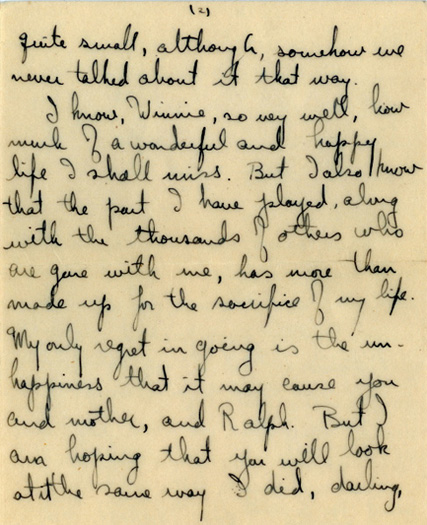 (2)
quite small, although, somehow we
never talked about it that way.
I know, Winnie, so very well, how
much of a wonderful and happy
life I shall miss. But I also know
that the part I have played, along
with the thousands of others who
are gone with me, has more than
made up for the sacrifice of my life.
My only regret in going is the un-
happiness that it may cause you
and mother, and Ralph. But I
am hoping that you will look
at it the same way I did, darling,